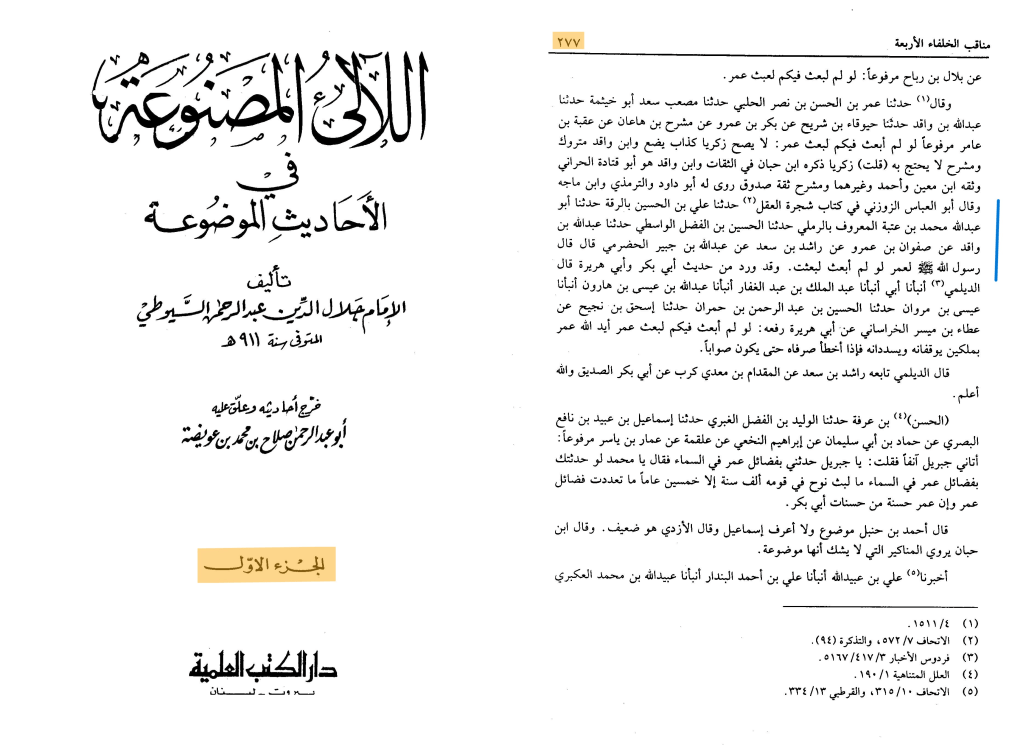 اللآلئ المصنوعة
في
الأحاديث الموضوعة
تأليف
الإمام جلال الدين عبد الرحمن السيوطي
المتوفى سنة ٩١١ هـ
خرج أحاديثه وعلق عليه
أبو عبد الرحمن صلاح بن محمد بن عويضة
الجزء الأول
دار الكتب العلمية
بيروت - لبنان
مناقب الخلفاء الأربعة
٢٧٧
عن بلال بن رباح مرفوعاً: لو لم لبعث فيكم لعبث عمر.
وقال(١) حدثنا عمر بن الحسن بن نصر الحلبي حدثنا مصعب سعد أبو خيثمة حدثنا
عبدالله بن واقد حدثنا حيوقاء بن شريح عن بكر بن عمرو عن مشرح بن هاعان عن عقبة بن
عامر مرفوعاً لو لم أبعث فيكم لبعث عمر: لا يصح زكريا كذاب يضع وابن واقد متروك
ومشرح لا يحتج به (قلت) زكريا ذكره ابن حبان في الثقات وابن واقد هو أبو قتادة الحراني
وثقه ابن معين وأحمد وغيرهما ومشرح ثقة صدوق روى له أبو داود والترمذي وابن ماجه
وقال أبو العباس الزوزني في كتاب شجرة العقل(٢) حدثنا علي بن الحسين بالرقة حدثنا أبو
عبدالله محمد بن عتبة المعروف بالرملي حدثنا الحسين بن الفضل الواسطي حدثنا عبدالله بن
واقد عن صفوان بن عمرو عن راشد بن سعد عن عبدالله بن جبير الحضرمي قال قال
رسول الله ﷺ لعمر لو لم أبعث لبعثت. وقد ورد من حديث أبي بكر وأبي هريرة قال
الديلمي(٣) أنبأنا أبي أنبأنا عبد الملك بن عبد الغفار أنبأنا عبدالله بن عيسى بن هارون أنبأنا
عيسى بن مروان حدثنا الحسين بن عبد الرحمن بن حمران حدثنا إسحق بن نجيح عن
عطاء بن ميسر الخراساني عن أبي هريرة رفعه: لو لم أبعث فيكم لبعث عمر أيد الله عمر
بملكين يوفقانه ويسددانه فإذا أخطأ صرفاه حتى يكون صواباً.
قال الديلمي تابعه راشد بن سعد عن المقدام بن معدي كرب عن أبي بكر الصديق والله
أعلم.
(الحسن)(٤) بن عرفة حدثنا الوليد بن الفضل الغبري حدثنا إسماعيل بن عبيد بن نافع
البصري عن حماد بن أبي سليمان عن إبراهيم النخعي عن علقمة عن عمار بن ياسر مرفوعاً:
أتاني جبريل آنفاً فقلت: يا جبريل حدثني بفضائل عمر في السماء فقال يا محمد لو حدثتك
بفضائل عمر في السماء ما لبث نوح في قومه ألف سنة إلا خمسين عاماً ما تعددت فضائل
عمر وإن عمر حسنة من حسنات أبي بكر.
قال أحمد بن حنبل موضوع ولا أعرف إسماعيل وقال الأزدي هو ضعيف. وقال ابن
حبان يروي المناكير التي لا يشك أنها موضوعة.
أخبرنا(٥) علي بن عبيدالله أنبأنا علي بن أحمد البندار أنبأنا عبيدالله بن محمد العكبري
(١) ١٥١١/٤.
(٢) الاتحاف ٥٧٢/٧، والتذكرة (٩٤).
(٣) فردوس الأخبار ٥١٦٧/٤١٧/٣.
(٤) العلل المتناهية ١٩٠/١.
(٥) الاتحاف ٣١٥/١٠، والقرطبي ٣٣٤/١٣.